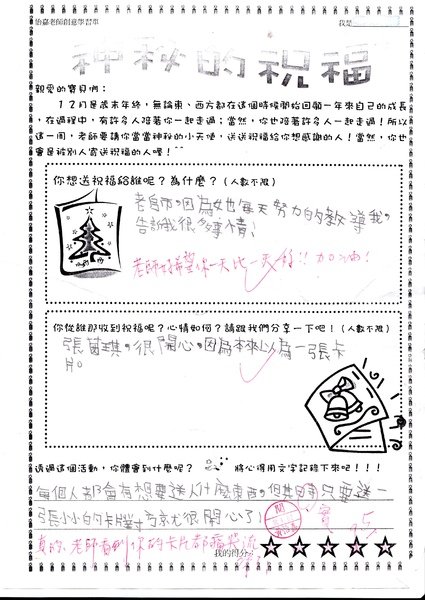 怡嘉老師創意學習單
我是
神秘的祝福
親愛的寶貝們：
１２月是歲末年終，無論東、西方都在這個時候開始回顧一年來自己的成長，
在過程中，有許多人陪著你一起走過；當然，你也陪著許多人一起走過！所以
這一周，老師要請你當當神秘的小天使，送送祝福給你想感謝的人！當然，你也
會是被別人寄送祝福的人喔！^^
你想送祝福給誰呢？為什麼？（人數不限）
老師。因為她每天努力的教導我。
告訴我很多事情！
老師好希望你一天比一天好!! 加油!
你從誰那收到祝福呢？心情如何？請跟我們分享一下吧！（人數不限）
張茵琪。很開心。因為本來以為一張卡
片。
透過這個活動，你體會到什麼呢？
將心得用文字記錄下來吧！！！
每個人都會有想要送人什麼東西。但其實只要送一
張小小的卡片對方就很開心了！
真的，老師看到你的卡片都痛哭流
我的得分：